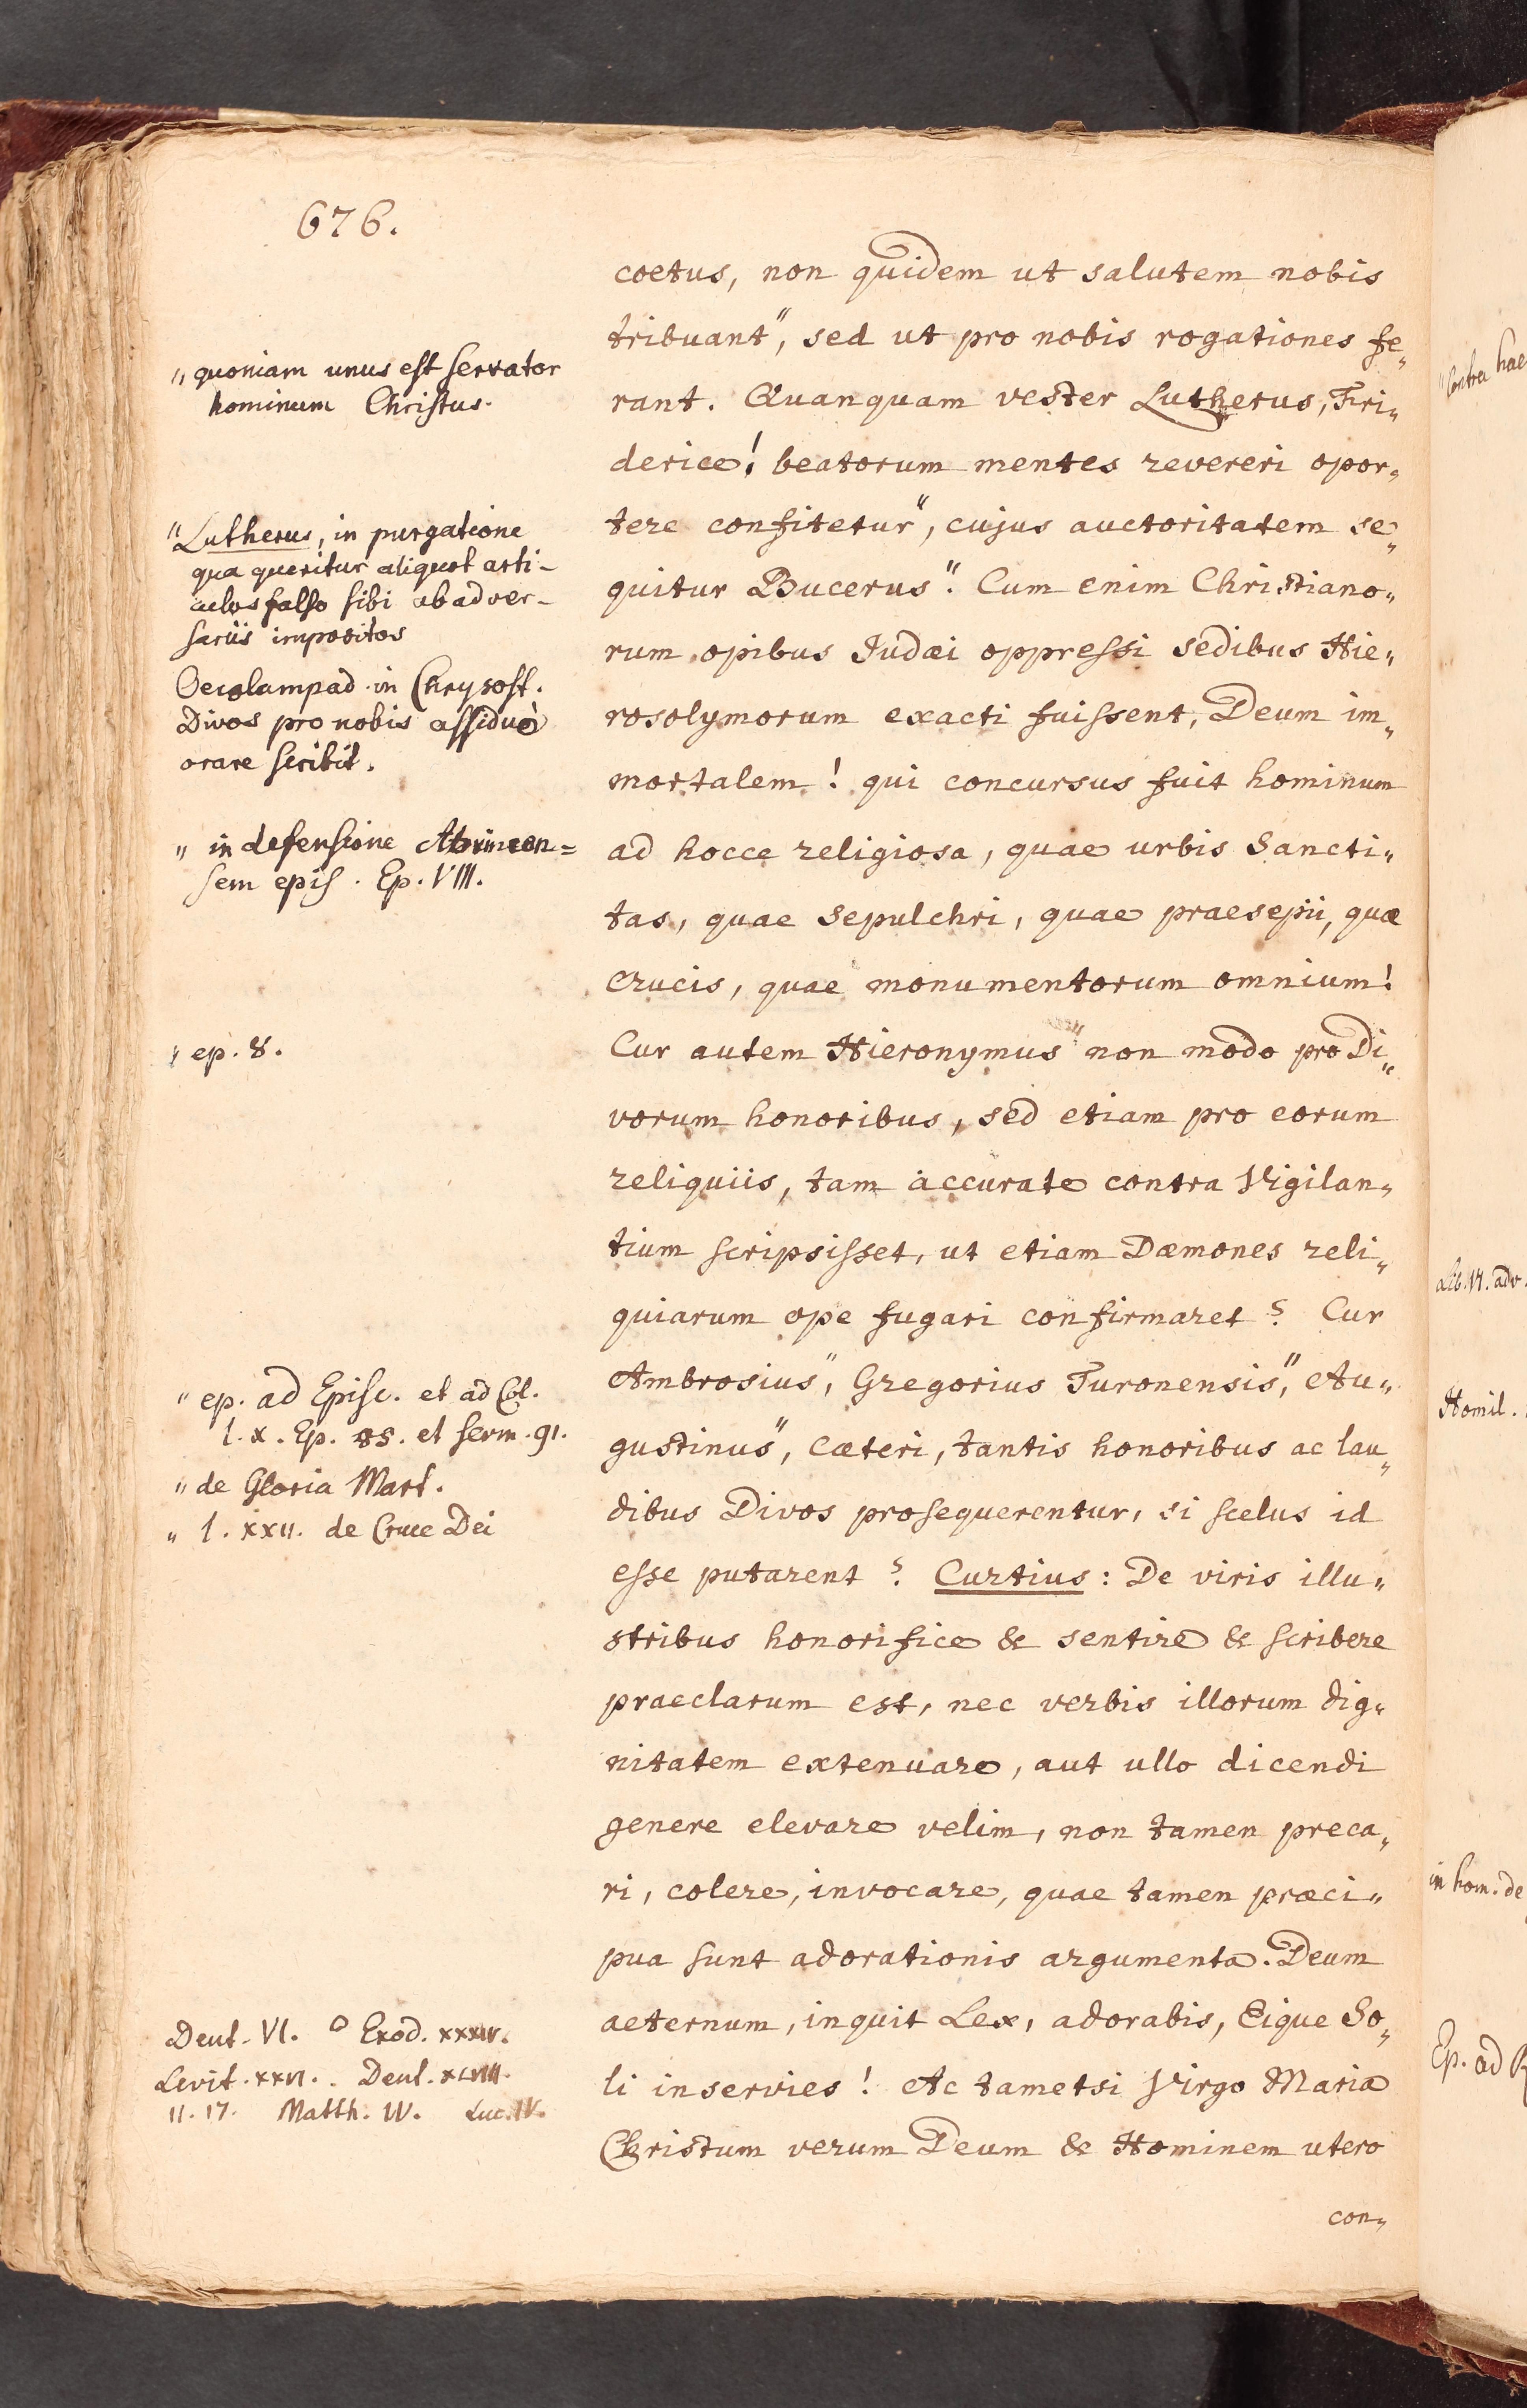 676.
coetus, non quidem ut salutem nobis
tribuant", sed ut pro nobis rogationes fe„
rant. Quanquam vester Lutherus, Fri„
derice! beatorum mentes revereri opor„
tere confitetur", cujus auctoritatem se„
quitur Bucerus". Cum enim Christiano„
rum opibus Judæi oppressi sedibus Hie„
rosolymorum exacti fuissent, Deum im„
mortalem! qui concursus fuit hominum
ad hocce religiosa, quae urbis Sancti„
tas, quae Sepulchri, quae praesepii, quæ
crucis, quae monumentorum omnium!
Cur autem Hieronymus" non modo pro Di„
vorum honoribus, sed etiam pro eorum
reliquiis, tam accurate contra Vigilan„
tium scripsisset, ut etiam Dæmones reli„
quiarum ope fugari confirmaret? Cur
Ambrosius", Gregorius Turonensis", Au„
gustinus", Cæteri, tantis honoribus ac lau„
dibus Divos prosequerentur, si scelus id
esse putarent? Curtius: De viris illu„
stribus honorifice & sentire & scribere
praeclarum est, nec verbis illorum dig„
nitatem extenuare, aut ullo dicendi
genere elevare velim, non tamen preca„
ri, colere, invocare, quae tamen præci„
pua sunt adorationis argumenta. Deum
aeternum, inquit Lex, adorabis, Eique So„
li inservies! Ac tametsi Virgo Maria
Christum verum Deum & Hominem utero
con„
" quoniam unus est servator
hominum Christus.
" Lutherus, in purgatione
qua queritur aliquot arti-
culos falso sibi ab adver-
sariis impositos
Oecolampad. in Chrysost.
Divos pro nobis assiduè
orare scribit.
" in defensione
sem epis. Ep. VIII.
" ep. 8.
" ep. ad Episc. et ad Col.
l. x. Ep. 85. et serm. 91.
" de Gloria Mart.
" l. XXII. de Cruce Dei
Deut. VI. Exod. XXXIV.
Levit. XXVI. Deut. XLVIII.
11. 17. Matth. IV. Luc. IV.
"Contra hae
Lib. VI. adv.
Homil.
in hom. de
Ep. ad